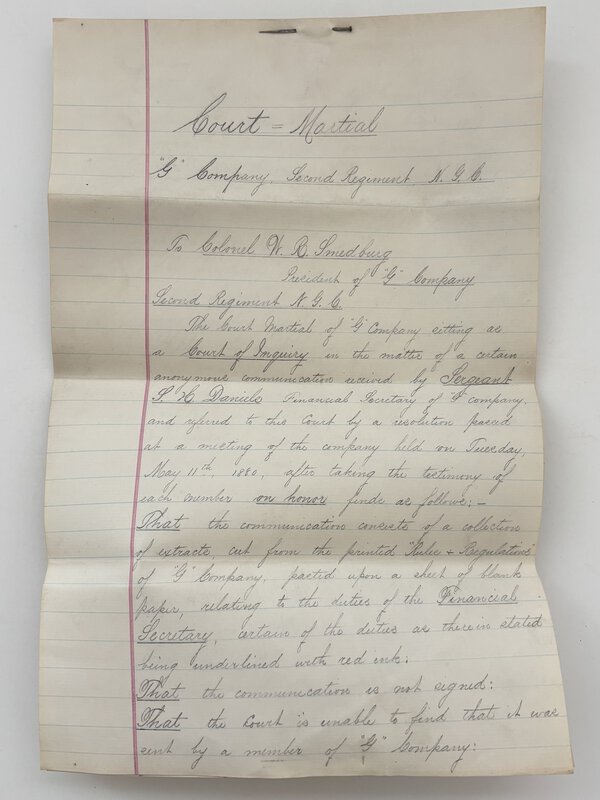 Court = Martial
"G" Company, Second Regiment N. G. C.
To Colonel W. R. Smedburg
President of "G" Company
Second Regiment N. G. C.
The Court Martial of "G" Company sitting as
a Court of Inquiry in the matter of a certain
anonymous communication received by Sergeant
S. H. Daniels Financial Secretary of G company,
and referred to this Court by a resolution passed
at a meeting of the company held on Tuesday,
May 11th, 1880, after taking the testimony of
each member on honor finds as follows:—
That the communication consists of a collection
of extracts, cut from the printed "Rules + Regulations"
of "G" Company, pasted upon a sheet of blank
paper, relating to the duties of the Financial
Secretary, certain of the duties as therein stated
being underlined with red ink:
That the communication is not signed:
That the Court is unable to find that it was
sent by a member of "G" Company: